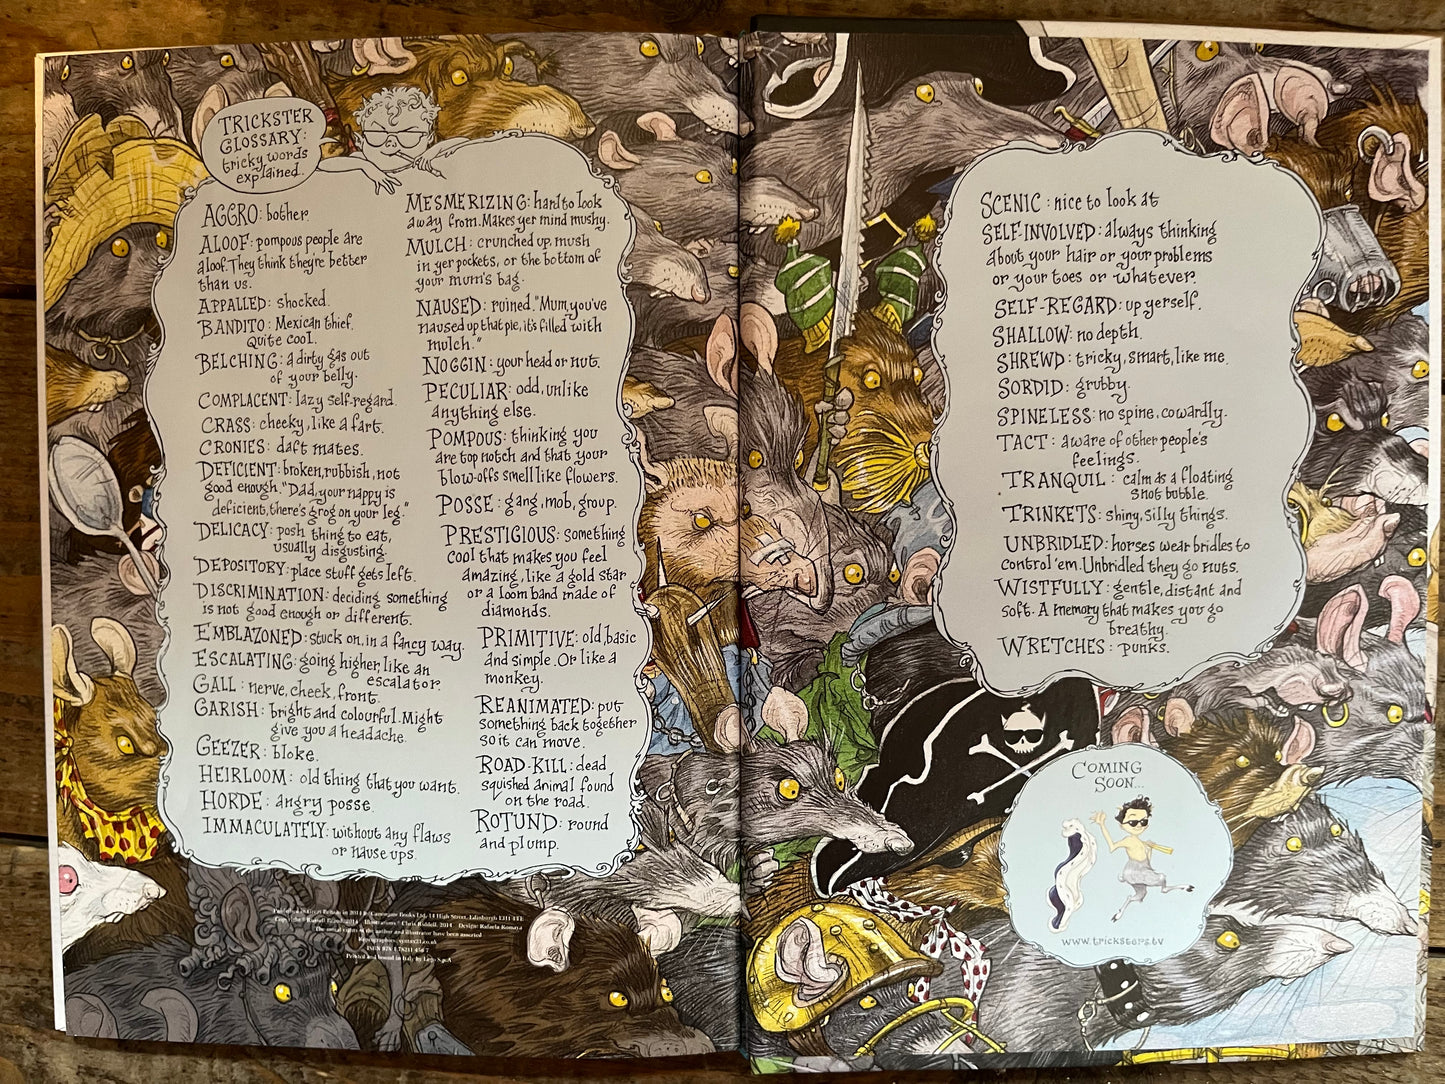 TRICKSTER
GLOSSARY:
tricky words
explained.
AGGRO: bother.
ALOOF: pompous people are
aloof. They think they're better
than us.
APPALLED: shocked.
BANDITO: Mexican thief.
Quite cool.
BELCHING: a dirty gas out
of your belly.
COMPLACENT: lazy self-regard.
CRASS: cheeky, like a fart.
CRONIES: daft mates.
DEFICIENT: broken, rubbish, not
good enough. "Dad, your nappy is
deficient, there's grog on your leg."
DELICACY: posh thing to eat,
usually disgusting.
DEPOSITORY: place stuff gets left.
DISCRIMINATION: deciding something
is not good enough or different.
EMBLAZONED: stuck on, in a fancy way.
ESCALATING: going higher, like an
escalator.
GALL: nerve, cheek, front.
GARISH: bright and colourful. Might
give you a headache.
GEEZER: bloke.
HEIRLOOM: old thing that you want.
HORDE: angry posse.
IMMACULATELY: without any flaws
or nause ups.
MESMERIZING: hard to look
away from. Makes yer mind mushy.
MULCH: crunched up, mush
in yer pockets, or the bottom of
your mum's bag.
NAUSED: ruined. "Mum, you've
naused up that pie, it's filled with
mulch."
NOGGIN: your head or nut.
PECULIAR: odd, unlike
anything else.
POMPOUS: thinking you
are top notch and that your
blow-offs smell like flowers.
POSSE: gang, mob, group.
PRESTIGIOUS: something
cool that makes you feel
amazing, like a gold star
or a loom band made of
diamonds.
PRIMITIVE: old, basic
and simple. Or like a
monkey.
REANIMATED: put
something back together
so it can move.
ROAD-KILL: dead
squished animal found
on the road.
ROTUND: round
and plump.
Published in Great Britain in 2014 by Canongate Books Ltd, 14 High Street, Edinburgh EH1 1TE
Copyright © Russell Brand, 2014 Illustrations © Chris Riddell, 2014 Design: Rafaela Romaya
The moral rights of the author and illustrator have been asserted
Reprographics:
ISBN 978 1 78211 456 7
Printed and bound in Italy by Lego S.p.A
SCENIC: nice to look at
SELF INVOLVED: always thinking
about your hair or your problems
or your toes or whatever.
SELF-REGARD: up yerself.
SHALLOW: no depth.
SHREWD: tricky, smart, like me.
SORDID: grubby.
SPINELESS: no spine, cowardly.
TACT: aware of other people's
feelings.
TRANQUIL: calm as a floating
snot bubble.
TRINKETS: shiny, silly things.
UNBRIDLED: horses wear bridles to
control 'em. Unbridled they go nuts.
WISTFULLY: gentle, distant and
soft. A memory that makes you go
breathy.
WRETCHES: punks.
COMING
SOON...
www.tricksters.tv